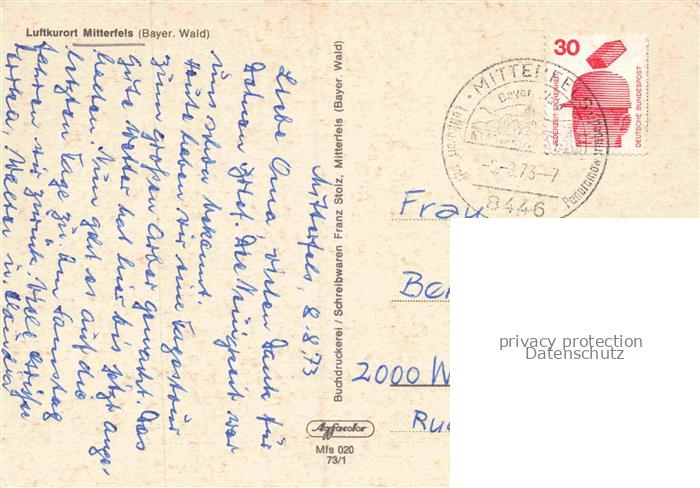 Luftkurort Mitterfels (Bayer. Wald)
Mitterfels, 8.8.73
Liebe Oma, vielen Dank für
Deinen Brief. Die Neuigkeit war
uns schon bekannt.
Heute haben wir eine Tagestour
zum großen Arber gemacht. Das
gute Wetter hat hier bis jetzt ange-
halten. Nun geht es auf die
letzten Tage zu. Am Samstag
fahren wir zurück. Viele Grüße
Erika, Walter u. Claudia
Buchdruckerei / Schreibwaren Franz Stolz, Mitterfels (Bayer. Wald)
Agfacolor
Mfs 020
73/1
MITTERFELS
Bayer.
Luftkurort
Panoramaw
-9.8.73-7
8446
30
JEDERZEIT SICHERHEIT
DEUTSCHE BUNDESPOST
Frau
Be
2000 W
Ru
privacy protection
Datenschutz